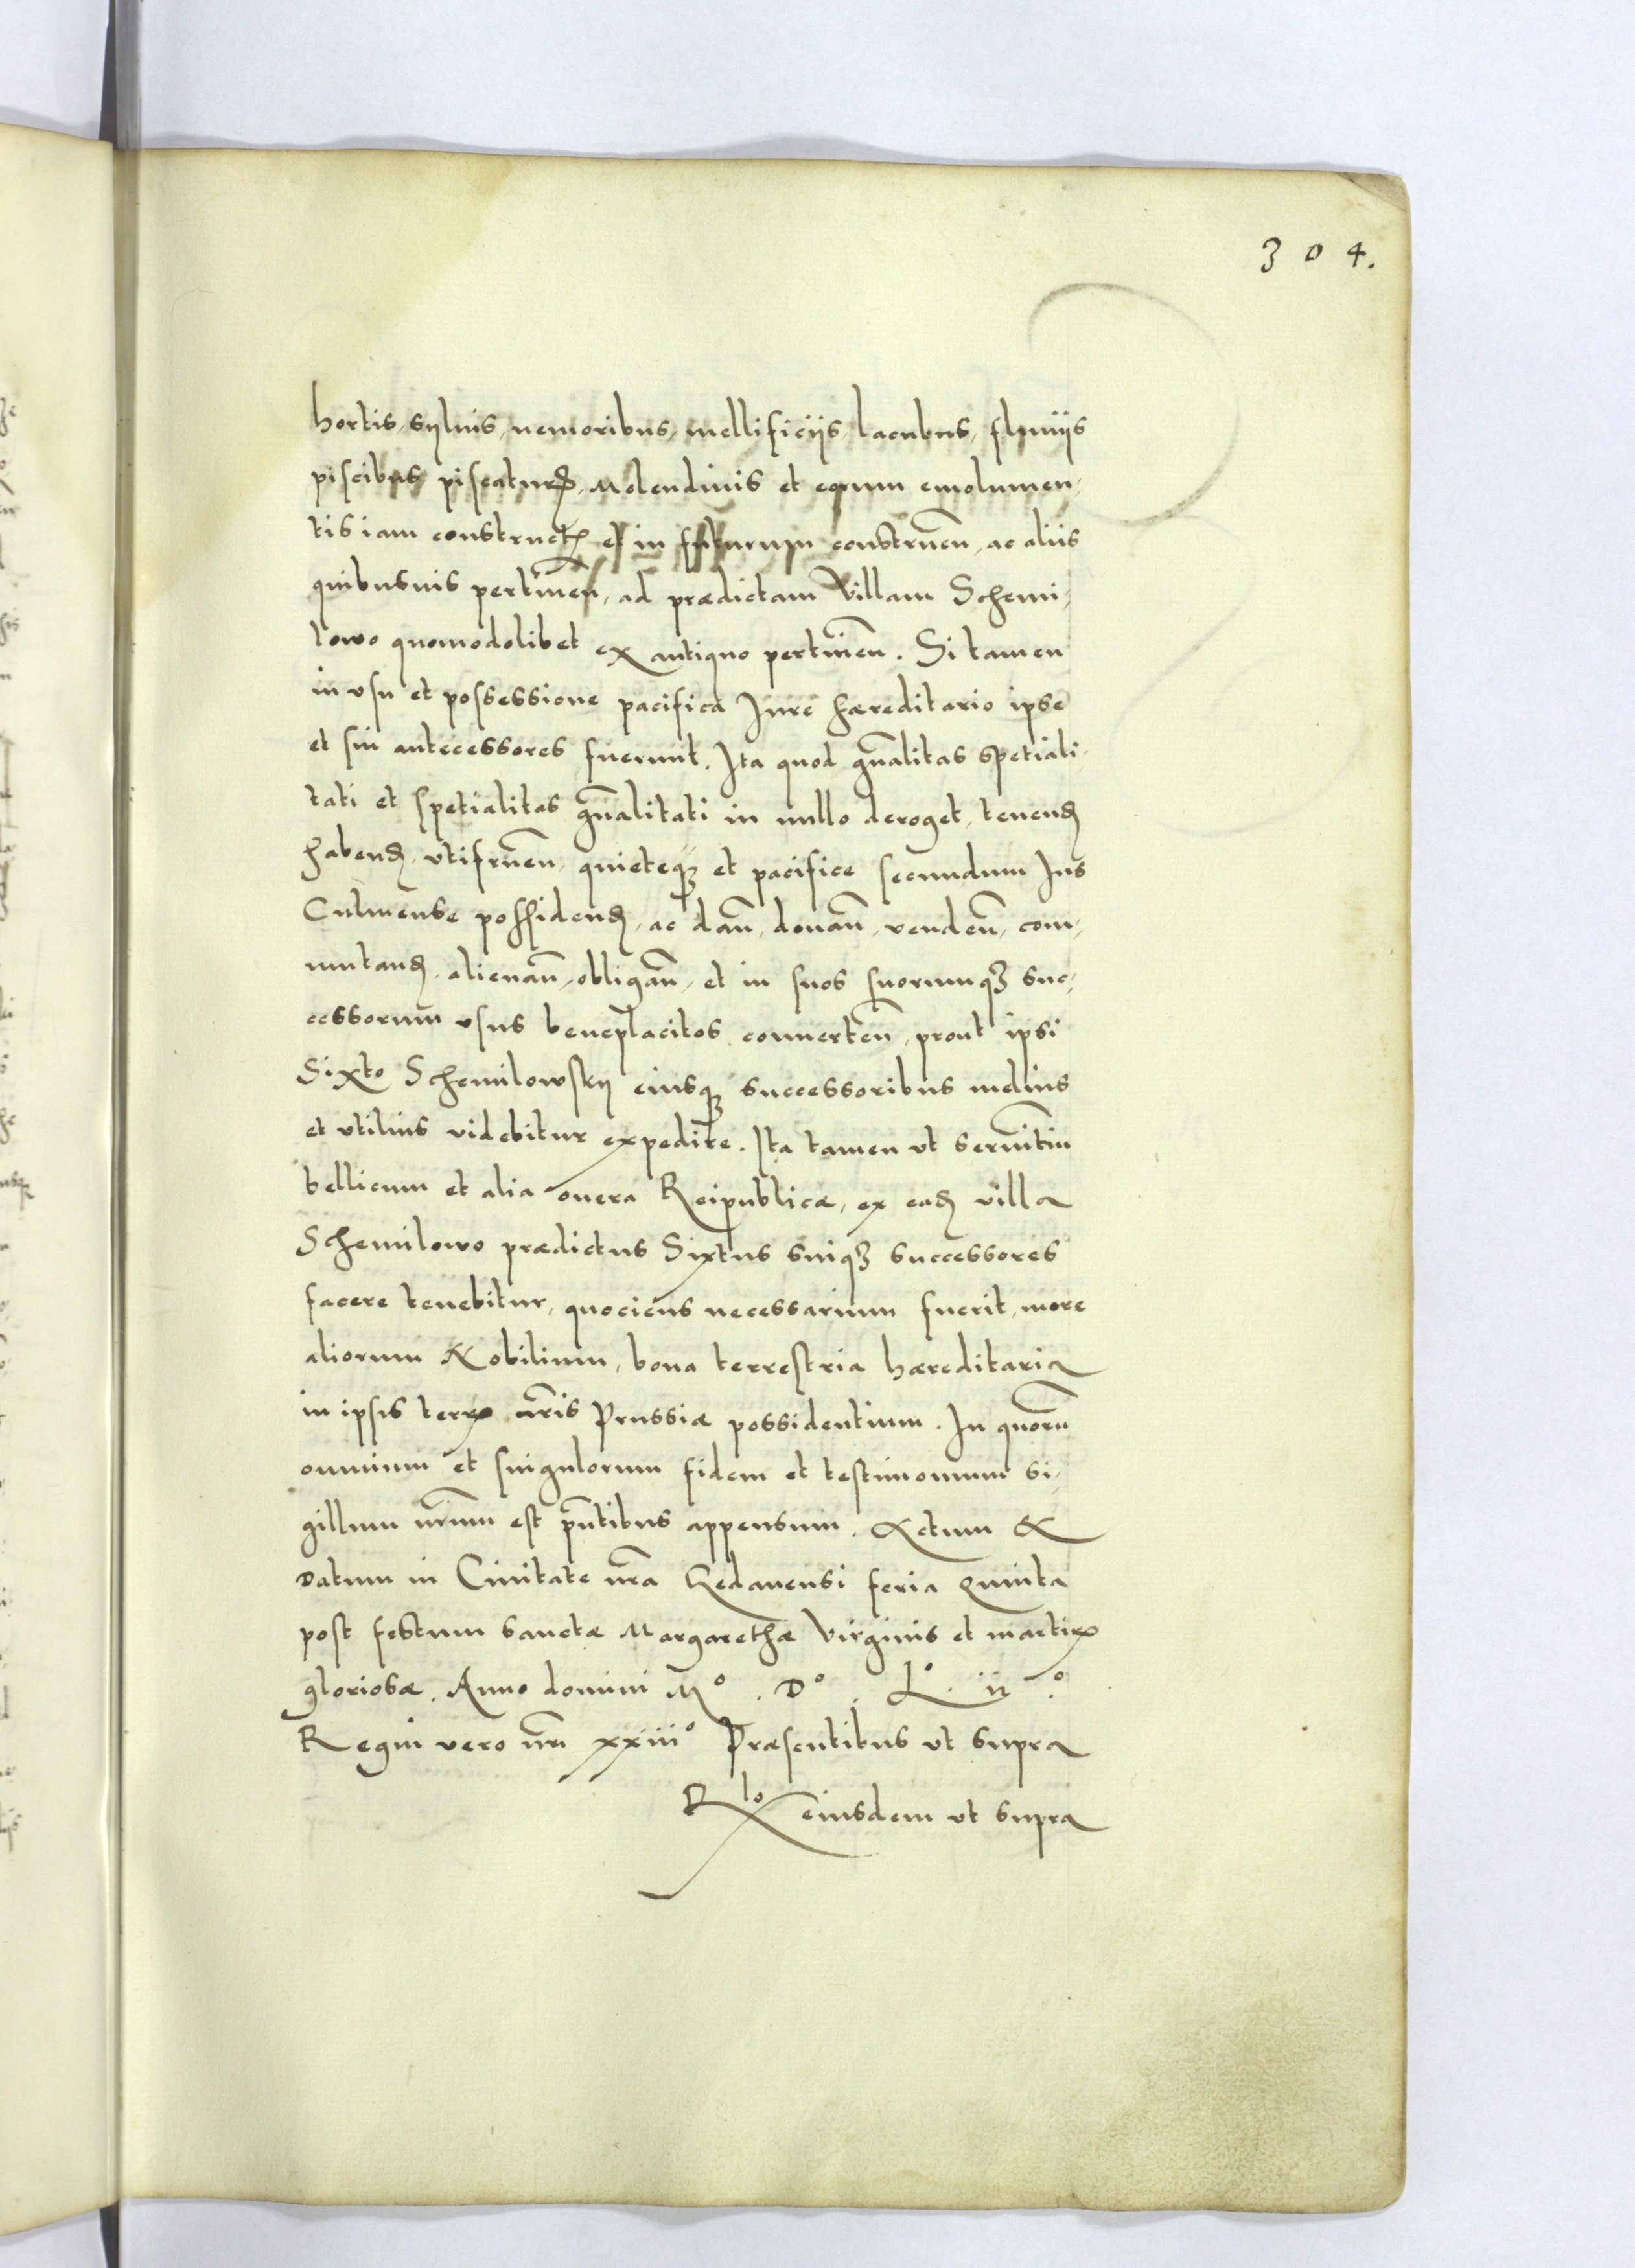 304.
hortis, syluis, nemoribus, mellificijs lacubus, fluuijs
piscibus piscaturꝭ, Molendinis et eorum emolumen,
tis iam constructꝭ et in futurum construen̄, ac aliis
quibusuis pertinen̄, ad prædictam Villam Schemi,
lowo quomodolibet ex antiquo pertinen̄. Si tamen
in vsu et possessione pacifica Jure hæreditario ipse
et sui antecessores fuerunt. Ita quod gn̄alitas spetiali,
tati et spetialitas gn̄alitati in nullo deroget, tenenꝭ
habenꝭ, vtifruen̄, quieteqꝫ et pacifice secundum Jus
Culmense possidenꝭ, ac dan̄, donan̄, venden̄, com,
mutanꝭ, alienan̄, obligan̄, et in suos suorumqꝫ suc,
cessorum vsus beneplacitos conuerten̄, prout ipsi
Sixto Schemilowskij eiusqꝫ successoribus melius
et vtilius videbitur expedire. Ita tamen vt seruitiū
bellicum et alia onera Reipublicæ, ex eaꝭ villa
Schemilowo prædictus Sixtus suiqꝫ successores
facere tenebitur, quociens necessarium fuerit, more
aliorum Nobilium, bona terrestria hæreditaria
in ipsis terrꝭ nr̄is Prussiæ possidentium. In quorū
omnium et singulorum fidem et testimonium si,
gillum nr̄um est pn̄tibus appensum. Actum &
Datum in Ciuitate nr̄a Gedanensi feria Quinta
post festum sanctæ Margarethæ Virginis et martirꝭ
gloriosæ. Anno domini Mº. Dº. Lº. ii.º
Regni vero nr̄i xxiiiº Præsentibus vt supra
Rlo eiusdem vt supra